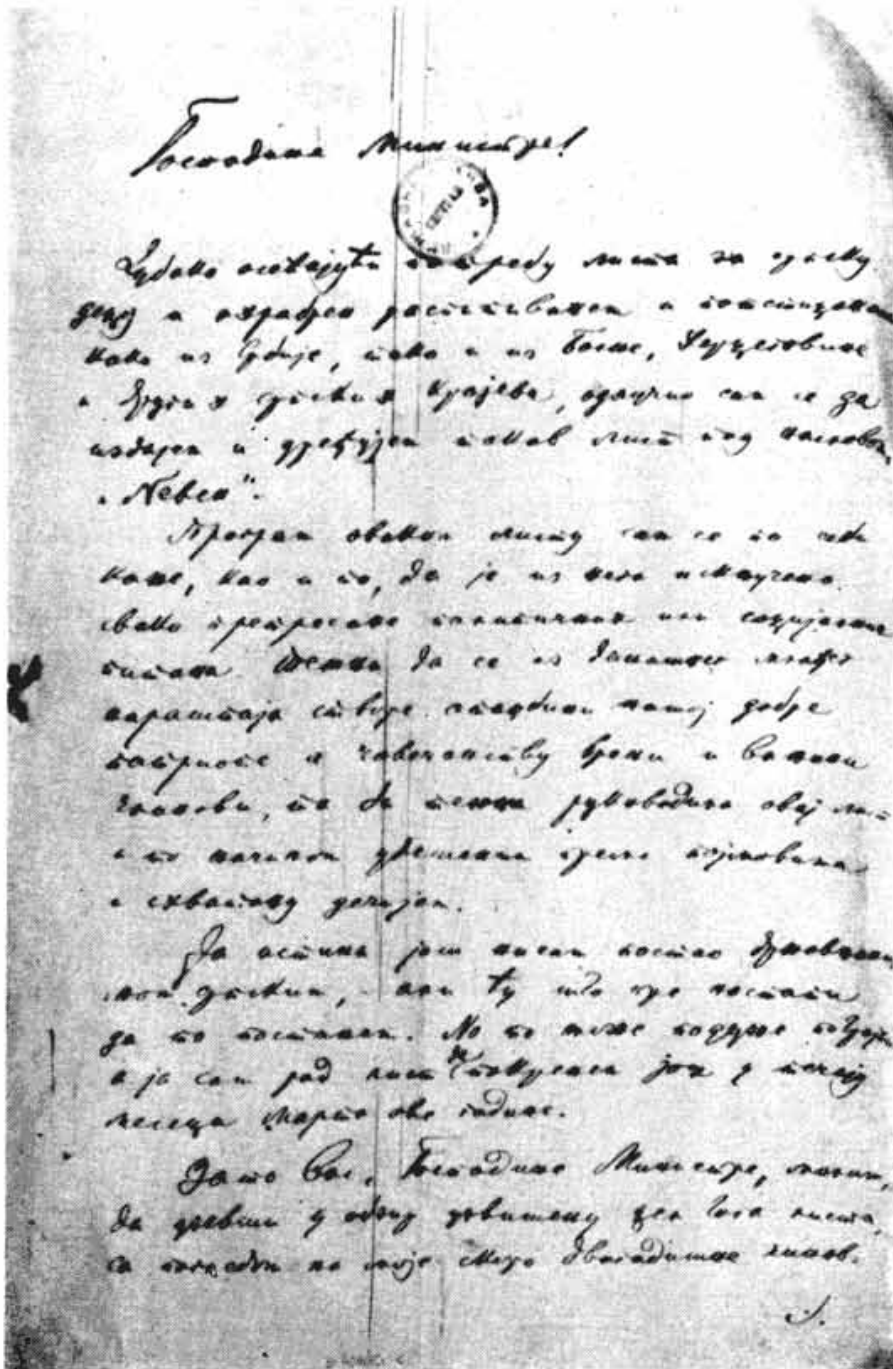 Господине Министре!
Дубоко осећајући потребу листа за српску
децу а охрабрен распитивањем и
како из Србије, тако и из Босне, Херцеговине
и других српских крајева, одлучио сам се да
издајем и уређујем такав лист под насловом
„Невен".
Програм оваком листу сам се по себи
каже, као и то, да је из њега искључено
свако претресање политичких или социјалних
питања. Тежња да се из данашњег млађег
нараштаја створе отаџбини нашој добре
патриоте а човечанству врсни и ваљани
чланови, та би тежња руководила овај лист
и то начином удешеним према појмовима
и схватању дечијем.
Ја истина још нисам постао држављанин
српски, али ћу што пре настати
да то постанем. Но то може подуже потрајати
а ја сам рад лист да покренем још у течају
месеца Марта ове године.
Зато Вас, Господине Министре, молим,
да узевши у обзир узвишену цел тога листа,
са погледом на моје скоро двогодишње чинов.